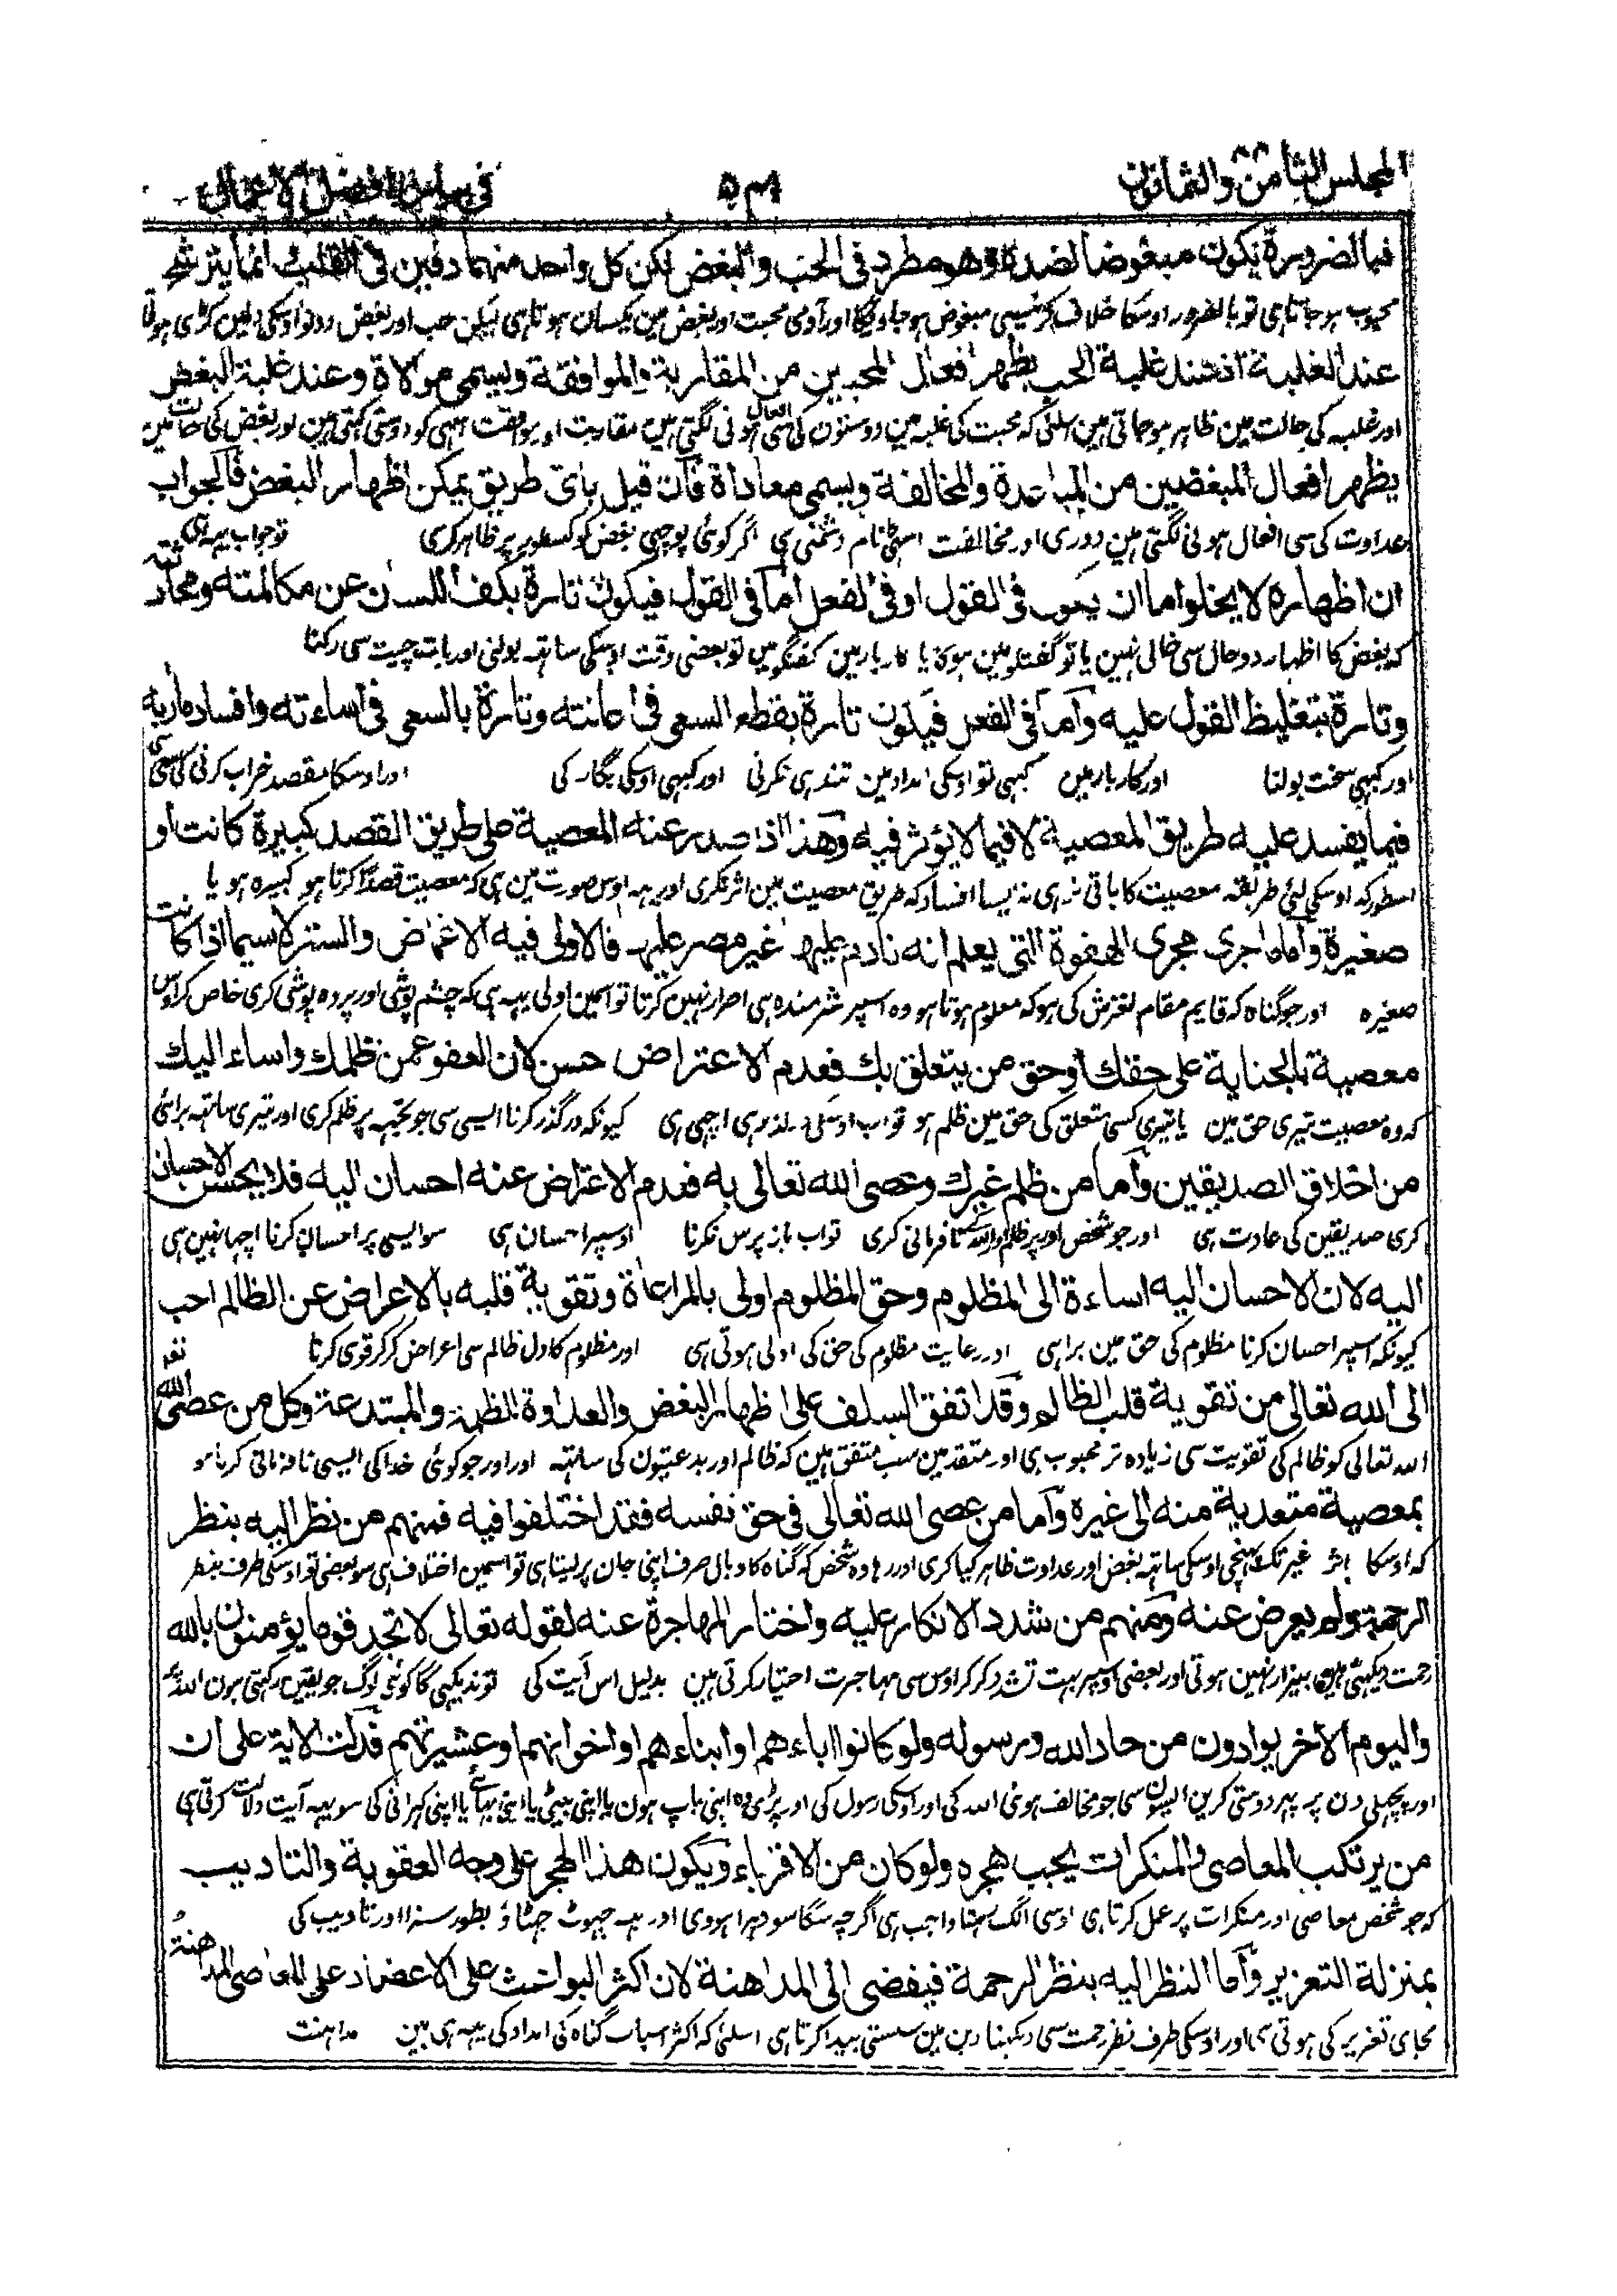 المجلس الثامن والثمانون
٥٣١
في بيان افضل الاعمال
فبالضرورة يكون مبغوضا لضده وهو مطرد في الحب والبغض لكن كل واحد منهما دفين في القلب انما يترشح
محبوب ہوجاتا ہی تو بالضرور اوسکا خلاف مبغوض ہوجاویگا اور آدمی محبت اور بغض مین یکسان ہوتا ہی لیکن حب اور بغض دونو اوسکی دلمین
عند الغلبة اذ عند غلبة الحب يظهر افعال المحبين من المقاربة والموافقة ويسمى موالاة وعند غلبة البغض
اور غلبہ کی حالت مین ظاہر ہوجاتی ہین اسلئی کہ محبت کی غلبہ مین دوستون کی سی افعال ہونی لگتی ہین مقاربت اور موافقت اسی کو دوستی کہتی ہین اور بغض کی حالت مین
يظهر افعال المبغضين من المباعدة والمخالفة ويسمى معاداة فان قيل باى طريق يمكن اظهار البغض فالجواب
عداوت کی سی افعال ہونی لگتی ہین دوری اور مخالفت اسکا نام دشمنی ہی اگر کوئی پوچہی بغض کو کسطور پر ظاہر کری تو جواب یہہ ہی
ان اظهاره لا يخلو اما ان يكون في القول او في الفعل اما في القول فيكون تارة بكف اللسان عن مكالمته ومحادثته
کہ بغض کا اظہار دو حال سی خالی نہین یا تو گفتگو مین ہوگا یا کاربار مین گفتگو مین تو بعضی وقت اوسکی ساتہہ بولنی اور بات چیت سی رکنا
وتارة بتغليظ القول عليه واما في الفعل فيكون تارة بقطع السعى في اعانته وتارة بالسعى في اساءته وافساد ماربه
اور کبہی سخت بولنا اور کاربار مین کبہی تو اوسکی امداد مین تندہی نکرنی اور کبہی اوسکی بگار کی اور اوسکا مقصد خراب کرنی کی سعی
فيما يفسد عليه طريق المعصية لا فيما لا يؤثر فيه وهذا اذا صدر عنه المعصية على طريق القصد كبيرة كانت او
اسطور کہ اوسکی لئی طریقہ معصیت کا باقی نرہی نہ ایسا افساد کہ طریق معصیت مین اثر نکری اور یہہ اوس صورت مین ہی کہ معصیت قصداً کرتا ہو کبیرہ ہو یا
صغيرة واما ما جرى مجرى الهفوة التي يعلم انه نادم عليها غير مصر عليها فالاولى فيه الاغماض والستر لا سيما اذا كانت
صغیرہ اور جو گناہ کہ قایم مقام لغزش کی ہو کہ معلوم ہوتا ہو وہ اسپر شرمندہ ہی اصرار نہین کرتا تو اسمین اولی یہہ ہی کہ چشم پوشی اور پردہ پوشی کری خاص کر اوس
معصية بالجناية على حقك او حق من يتعلق بك فعدم الاعتراض حسن لان العفو عمن ظلمك واساء اليك
کہ وہ معصیت تیری حق مین یا تیری کسی متعلق کی حق مین ظلم ہو تو اب اچہی ہی کیونکہ درگذر کرنا ایسی سی جو تجہہ پر ظلم کری اور تیری ساتہہ برائی
من اخلاق الصديقين واما من ظلم غيرك وعصى الله تعالى به فعدم الاعتراض عنه احسان اليه فلا يحسن الاحسان
کری صدیقین کی عادت ہی اور جو شخص اور پر ظلم اور اللہ کی نافرمانی کری تو اب باز پرس نکرنا اوسپر احسان ہی سو ایسی پر احسان کرنا اچہا نہین ہی
اليه لان الاحسان اليه اساءة الى المظلوم وحق المظلوم اولى بالمراعاة وتقوية قلبه بالاعراض عن الظالم احب
کیونکہ اسپر احسان کرنا مظلوم کی حق مین برا ہی اور رعایت مظلوم کی حق کی اولی ہوتی ہی اور مظلوم کا دل ظالم سی اعراض کرکر قوی کرنا
الى الله تعالى من تقوية قلب الظالم وقد اتفق السلف على اظهار البغض والعداوة للظلمة والمبتدعة وكل من عصى الله
اللہ تعالی کو ظالم کی تقویت سی زیادہ تر محبوب ہی اور متقدمین سب متفق ہین کہ ظالم اور بدعتیون کی ساتہہ اور اور جو کوئی خدا کی ایسی نافرمانی کرتا ہو
بمعصية متعدية منه الى غيره واما من عصى الله تعالى في حق نفسه فقد اختلفوا فيه فمنهم من نظر اليه بنظر
کہ اوسکا اثر غیر تک پہنچی اوسکی ساتہہ بغض اور عداوت ظاہر کیا کری اور رہا وہ شخص کہ گناہ کا وبال صرف اپنی جان پر لیتا ہی تو اسمین اختلاف ہی سو بعضی تو اوسکی طرف بنظر
الرحمة ولم يعرض عنه ومنهم من شدد الانكار عليه واختار المهاجرة عنه لقوله تعالى لا تجد قوما يؤمنون بالله
رحمت دیکہتی ہین بیزار نہین ہوتی اور بعضی اوسپر بہت تشدد کرکر اوس سی مہاجرت اختیار کرتی ہین بدلیل اس آیت کی تو ندیکہی گا کوئی لوگ جو یقین رکہتی ہون اللہ پر
واليوم الاخر يوادون من حاد الله ورسوله ولو كانوا اباءهم او ابناءهم او اخوانهم او عشيرتهم فدلت الاية على ان
اور پچہلی دن پر پہر دوستی کرین ایسون سی جو مخالف ہوئی اللہ کی اور اوسکی رسول کی اور پڑی وہ اپنی باپ ہون یا اپنی بیٹی یا اپنی بہائی یا اپنی گہرانی کی سو یہہ آیت دلالت کرتی ہی
من يرتكب المعاصى والمنكرات يجب هجره ولو كان من الاقرباء ويكون هذا الهجر على وجه العقوبة والتاديب
کہ جو شخص معاصی اور منکرات پر عمل کرتا ہی اوسی الگ رہنا واجب ہی اگرچہ سگا سودہرا ہووی اور یہہ چہوٹ چہٹاؤ بطور سزا اور تادیب کی
بمنزلة التعزير واما النظر اليه بنظر الرحمة فيفضى الى المداهنة لان اكثر البواعث على الاعضاد على المعاصى المداهنة
بجای تعزیر کی ہوتی ہی اور اوسکی طرف نظر رحمت سی دیکہنا دین مین سستی پیدا کرتا ہی اسلئی کہ اکثر اسباب گناہ کی امداد کی یہہ ہی ہین مداہنت